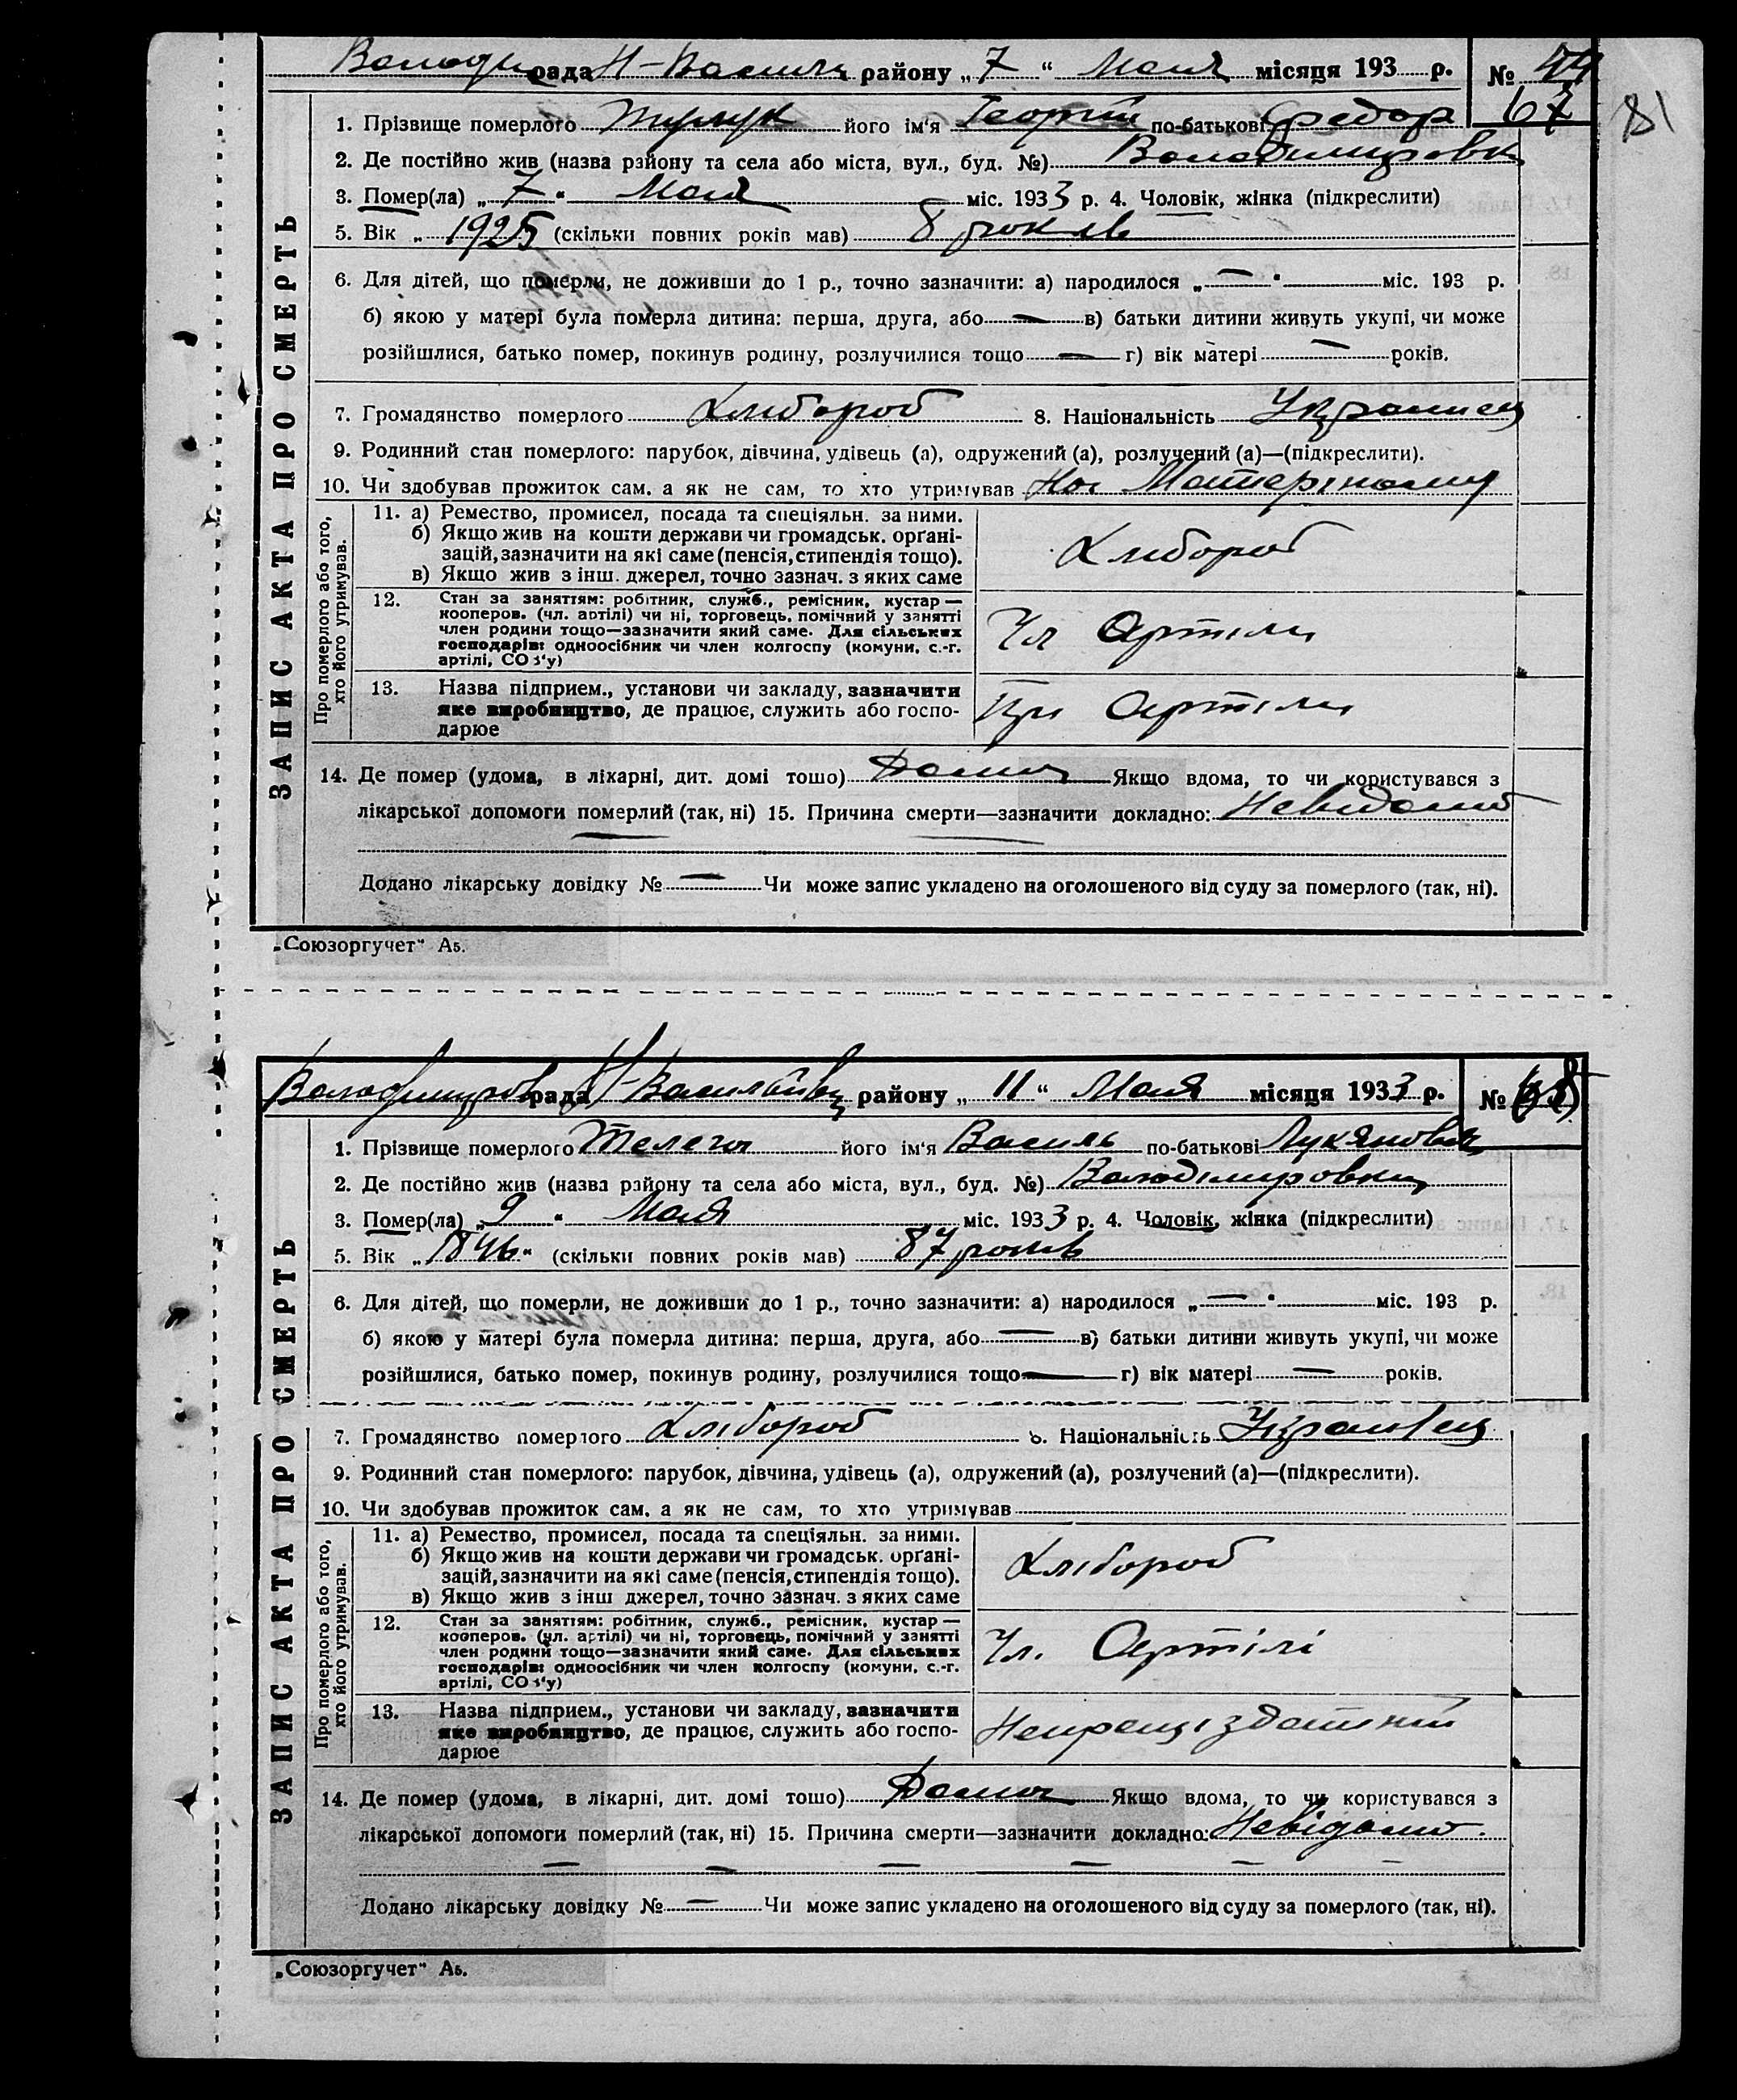 рада Н-Васильк району „ 7 “ Мая місяця 193 р. № 44
67
81
1. Прізвище померлого його ім'я Георгій по-батькові Федор
2. Де постійно жив (назва району та села або міста, вул., буд. №) Володимировк
3. Помер(ла) „ 7 “ Мая міс. 1933 р. 4. Чоловік, жінка (підкреслити)
5. Вік „ 1925 (скільки повних років мав) 8 років
6. Для дітей, що померли, не доживши до 1 р., точно зазначити: а) народилося „ — “ міс. 193 р.
б) якою у матері була померла дитина: перша, друга, або — в) батьки дитини живуть укупі, чи може
розійшлися, батько помер, покинув родину, розлучилися тощо — г) вік матері — років.
7. Громадянство померлого Хлібороб 8. Національність Украинец
9. Родинний стан померлого: парубок, дівчина, удівець (а), одружений (а), розлучений (а)—(підкреслити).
10. Чи здобував прожиток сам, а як не сам, то хто утримував
Про померлого або того, хто його утримував.
11. а) Ремество, промисел, посада та спеціяльн. за ними.
б) Якщо жив на кошти держави чи громадськ. органі-
зацій, зазначити на які саме (пенсія, стипендія тощо).
в) Якщо жив з інш. джерел, точно зазнач. з яких саме
Хлібороб
12. Стан за заняттям: робітник, служб., ремісник, кустар —
кооперов. (чл. артілі) чи ні, торговець, помічний у занятті
член родини тощо—зазначити який саме. Для сільських
господарів: одноосібник чи член колгоспу (комуни, с.-г.
артілі, СОЗ'у)
Чл Артили
13. Назва підприєм., установи чи закладу, зазначити
яке виробництво, де працює, служить або госпо-
дарює
При Артили
14. Де помер (удома, в лікарні, дит. домі тощо) Дома Якщо вдома, то чи користувався з
лікарської допомоги померлий (так, ні) 15. Причина смерти—зазначити докладно: Невидомо
Додано лікарську довідку № — Чи може запис укладено на оголошеного від суду за померлого (так, ні).
ЗАПИС АКТА ПРО СМЕРТЬ
„Союзоргучет“ А5.
Володимиров рада Н-Василівк району „ 11 “ Мая місяця 1933 р. №
1. Прізвище померлого Телега його ім'я Василь по-батькові Лукянович
2. Де постійно жив (назва району та села або міста, вул., буд. №) Володімировки
3. Помер(ла) „ 9 “ Мая міс. 1933 р. 4. Чоловік, жінка (підкреслити)
5. Вік „ 1846 “ (скільки повних років мав) 87 років
6. Для дітей, що померли, не доживши до 1 р., точно зазначити: а) народилося „ — “ міс. 193 р.
б) якою у матері була померла дитина: перша, друга, або — в) батьки дитини живуть укупі, чи може
розійшлися, батько помер, покинув родину, розлучилися тощо — г) вік матері — років.
7. Громадянство померлого Хлібороб 8. Національність Украінец
9. Родинний стан померлого: парубок, дівчина, удівець (а), одружений (а), розлучений (а)—(підкреслити).
10. Чи здобував прожиток сам, а як не сам, то хто утримував
Про померлого або того, хто його утримував.
11. а) Ремество, промисел, посада та спеціяльн. за ними.
б) Якщо жив на кошти держави чи громадськ. органі-
зацій, зазначити на які саме (пенсія, стипендія тощо).
в) Якщо жив з інш джерел, точно зазнач. з яких саме
Хлібороб
12. Стан за заняттям: робітник, служб., ремісник, кустар —
кооперов. (чл. артілі) чи ні, торговець, помічний у занятті
член родини тощо—зазначити який саме. Для сільських
господарів: одноосібник чи член колгоспу (комуни, с.-г.
артілі, СОЗ'у)
Чл. Артілі
13. Назва підприєм., установи чи закладу, зазначити
яке виробництво, де працює, служить або госпо-
дарює
Непрацездатній
14. Де помер (удома, в лікарні, дит. домі тощо) Дома Якщо вдома, то чи користувався з
лікарської допомоги померлий (так, ні) 15. Причина смерти—зазначити докладно: Невідомо.
Додано лікарську довідку № — Чи може запис укладено на оголошеного від суду за померлого (так, ні).
ЗАПИС АКТА ПРО СМЕРТЬ
„Союзоргучет“ А5.